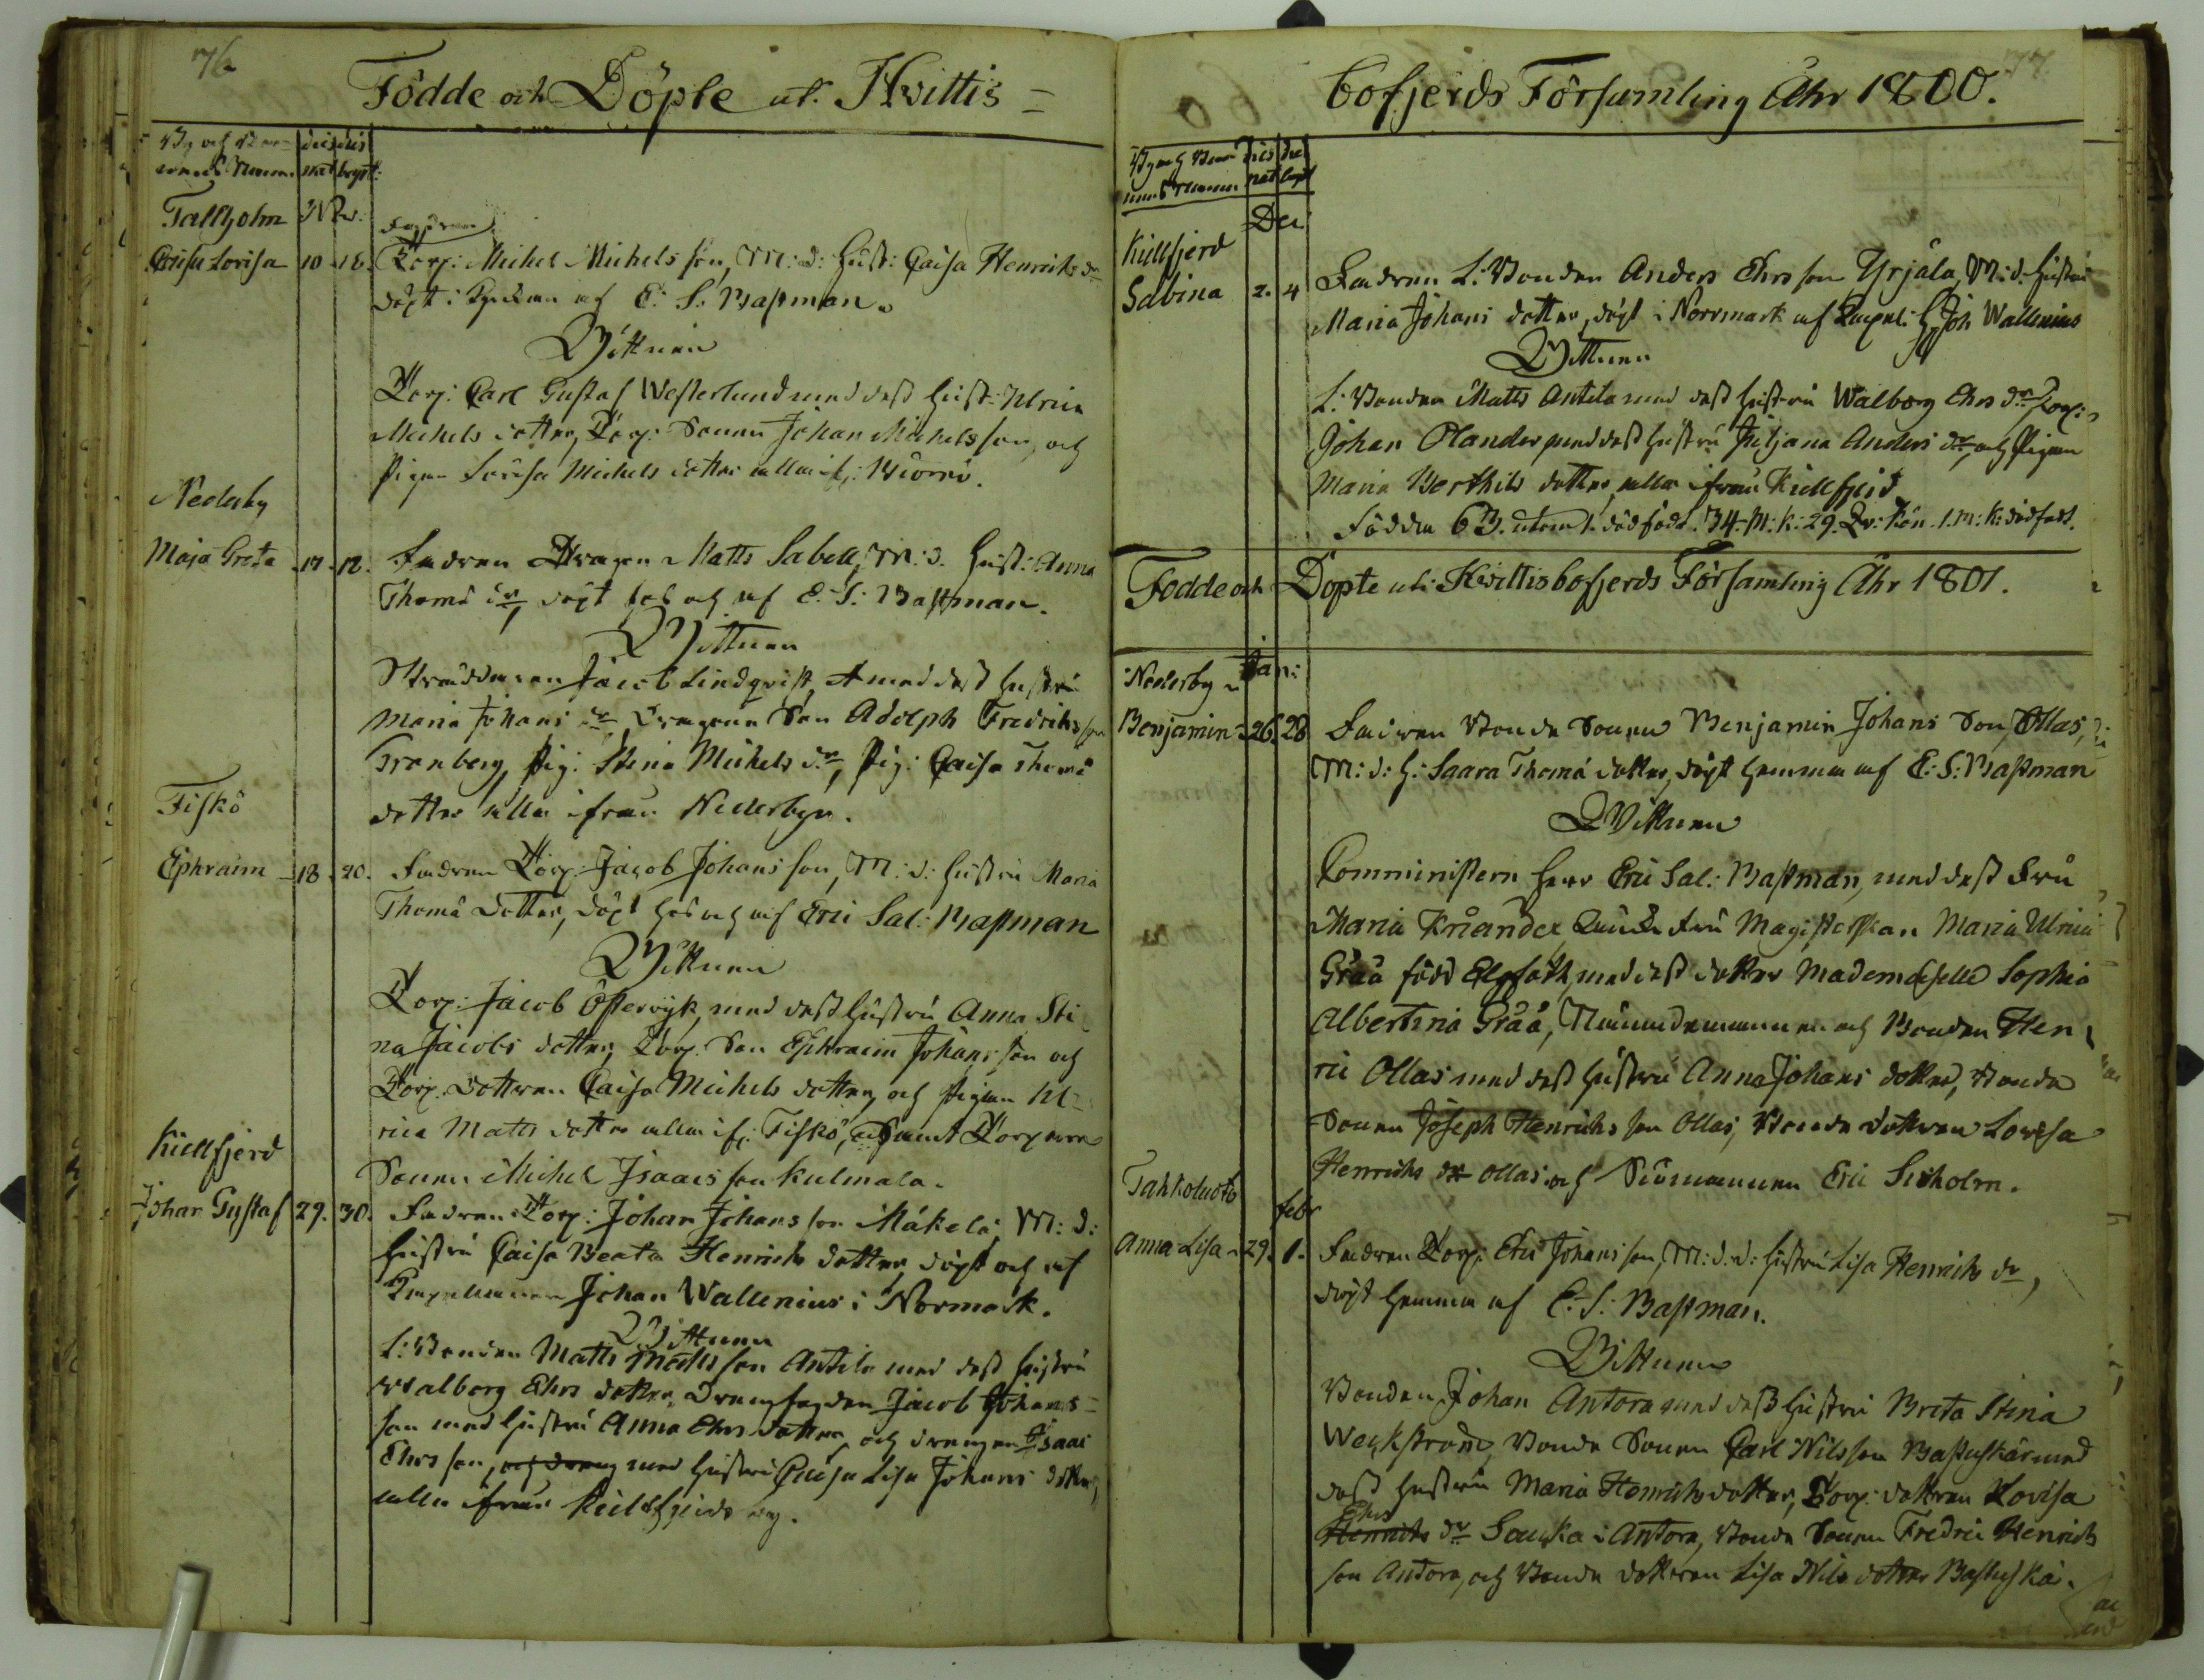 76
Födde och Döpte uti Hvittis=
By och Bar=
nens Namn
dies nat
dies bapt:
Tallholm
Nov.
Fadren
Caisa Lovisa 10 18. Torp: Michel Michelsson, M: d: Hust: Caisa Henriks dr
döpt i Kyrkan af E: S: Bassman.
Wittnen
Torp: Carl Gustaf Westerlund med dess Hust: Ulrica
Michels dotter, Torp: Sonen Johan Michelsson, och
Pigan Lovisa Michels dotter alla if:
Nederby
Maja Greta 17. 18. Fadren Dragon Matts Sabell, M: d. Hust: Anna
Thomæ dr, döpt hos och af E: S: Bassman.
Wittnen
Skräddaren Jacob Lindqvist, med dess Hustru
Maria Johans dr Dragoun Son Adolph Fredriksson
Granberg, Pig: Stina Michels dr, Pig: Caisa Thomæ
dotter alla ifrån Nederbyn.
Fiskö
Ephraim 18. 20. Fadren Torp: Jacob Johansson, M: d: Hustru Maria
Thomæ Dotter, döpt hos och af Eric Sal: Bassman
Wittnen
Torp: Jacob Österwyk, med dess Hustru Anna Sti
na Jacobs dotter, Torp. Son Ephraim Johansson och
Torp. dottren Caisa Michels dotter, och Pigan Ul=
rica Matts dotter alla if: Fiskö, Samt Torpare
Sonen Michel Isaacsson Kulmala.
Kiellfjerd
Johan Gustaf 29. 30. Fadren Torp: Johan Johansson Mäkelä, M: d:
Hustru Caisa Beata Henriks dotter, döpt och af
Johan Wallenius i Normark.
Wittnen
L: Bonden Matts Mattsson Antila med dess Hustru
Walborg Ehrs dotter, Jacob Johans=
son med Hustru Anna Ehrs dotter, och drengen Isaac
Ehrsson, och dreng med Hustru Caisa Lisa Johans dotter,
alla ifrån Kiellfjerds by.
77.
bofjerds Församling Åhr 1800.
By och Bar
nens Namn
dies nat
dies bapt
Dec:
Kiellfjerd
Sabina 2. 4 Fadren L: Bonden Anders Ehrsson Yrjälä, M: d. Hustru
Maria Johans dotter, döpt i Norrmark af Joh Wallenius
Wittnen
L: Bonden Matts Antila med dess Hustru Walborg Ehrs dr Torp:
Johan Olander med dess Hustru Juljana Anders dr och Pigan
Maria Berthils dotter, alla ifrån Kiellfjerd
Födde 63. utom 1. dödfödt. 34. M: k: 29. Qv: kön. 1. M: k: dödfödt.
Födde och Döpte uti Hvittisbofjerds Församling Åhr 1801.
Nederby
Jan:
Benjamin 26. 28 Fadren Bonde Sonen Benjamin Johans Son Ollas,
M: d: H: Saara Thomæ dotter, döpt hemma af E: S: Bassman
Wittnen
Comministern Herr Eric Sal: Bassman, med dess Fru
Maria Kriander, Fru Magisterskan Maria Ulrica
Gråå född Elgfoth, med dess dotter Mademoiselle Sophia
Albertina Gråå, Nämndemannen och Bonden Hen
ric Ollas med dess Hustru Anna Johans dotter, Bonde
Sonen Joseph Henriksson Ollas, Bonde dottren Lovisa
Henriks dr Ollas och Sjömannen Eric Sivholm.
Tahkoluoto
febr
Anna Lisa 29. 1. Fadren Torp: Eric Johansson, M: d: d: Hustru Lisa Henriks dr,
döpt hemma af E: S: Bassman.
Wittnen
Bonden Johan Antora med dess Hustru Brita Stina
Weckström, Bonde Sonen Carl Nilsson Bastuskär med
dess Hustru Maria Henriks dotter, Torp: dottren Lovisa
Ehrs
Henriks dr i Antora, Bonde Sonen Fredric Henriks
son Antora, och Bonde dottren Lisa Nils dotter Bastuskär.